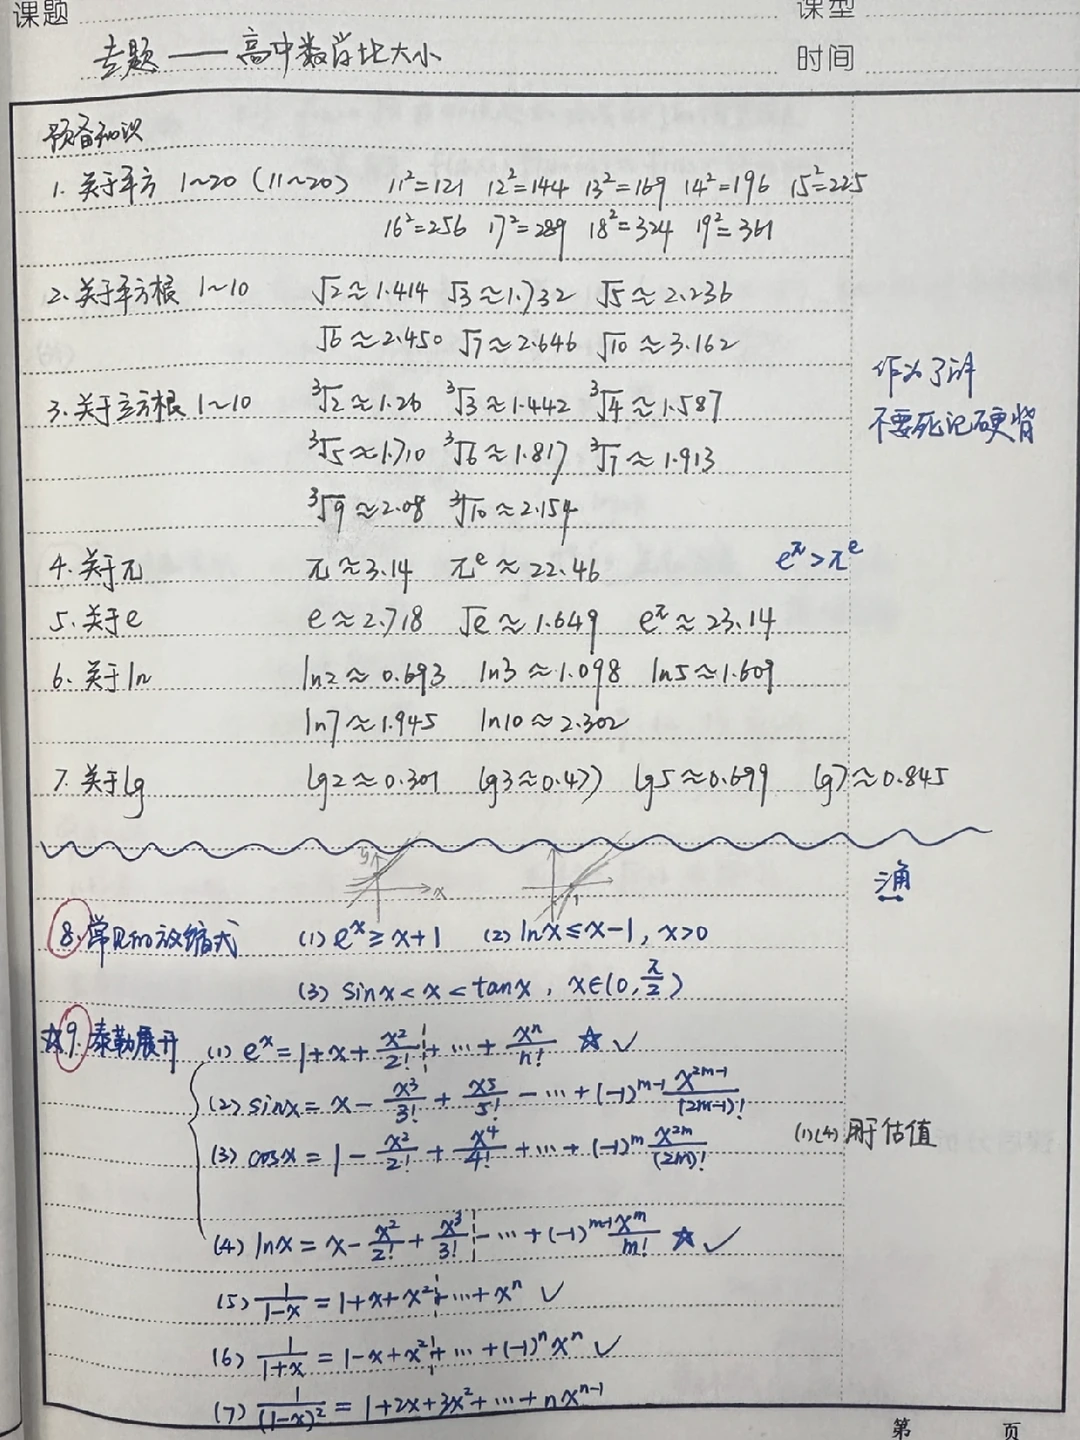 课题
课型
专题——高中数学比大小
时间
预备知识
1. 关于平方 1~20 (11~20) 11²=121 12²=144 13²=169 14²=196 15²=225
16²=256 17²=289 18²=324 19²=361
2. 关于平方根 1~10 √2≈1.414 √3≈1.732 √5≈2.236
√6≈2.450 √7≈2.646 √10≈3.162
3. 关于立方根 1~10 ³√2≈1.26 ³√3≈1.442 ³√4≈1.587
³√5≈1.710 ³√6≈1.817 ³√7≈1.913
³√9≈2.08 ³√10≈2.154
作为了解
不要死记硬背
4. 关于π π≈3.14 π^e≈22.46 e^π>π^e
5. 关于e e≈2.718 √e≈1.649 e^π≈23.14
6. 关于ln ln2≈0.693 ln3≈1.098 ln5≈1.609
ln7≈1.945 ln10≈2.302
7. 关于lg lg2≈0.301 lg3≈0.477 lg5≈0.699 lg7≈0.845
y x 1
三角
8. 常见的放缩式 (1) e^x≥x+1 (2) lnx≤x-1, x>0
(3) sinx<x<tanx, x∈(0, π/2)
☆9. 泰勒展开 (1) e^x=1+x+x²/2!+…+x^n/n! ☆ ✓
(2) sinx=x-x³/3!+x⁵/5!-…+(-1)^(m-1) x^(2m-1)/(2m-1)!
(3) cosx=1-x²/2!+x⁴/4!+…+(-1)^m x^(2m)/(2m)!
(1)(4)用于估值
(4) lnx=x-x²/2!+x³/3!-…+(-1)^(m-1) x^m/m! ☆ ✓
(5) 1/(1-x)=1+x+x²+…+x^n ✓
(6) 1/(1+x)=1-x+x²+…+(-1)^n x^n ✓
(7) 1/(1-x)²=1+2x+3x²+…+nx^(n-1)
第 页